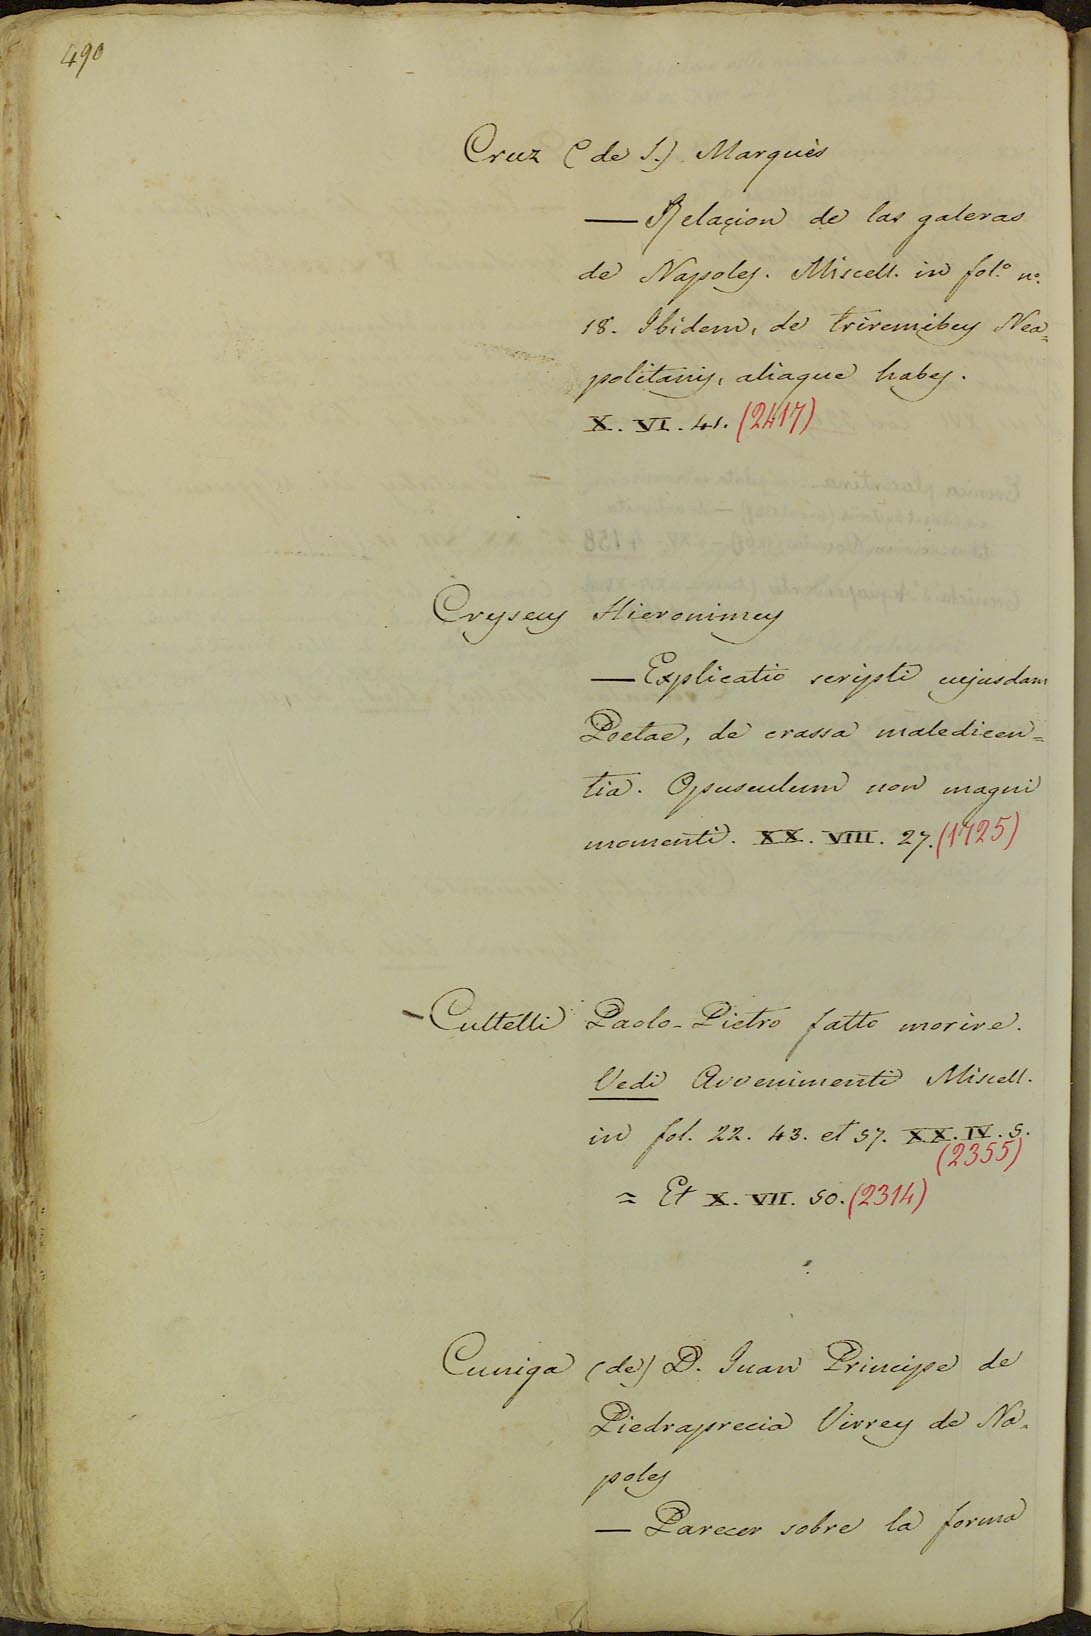 490
Cruz (de S.) Marquès
— Relaçion de las galeras
de Napoles. Miscell. in fol.º nº.
18. Ibidem, de triremibus Nea=
politanis, aliaque habes.
X. VI. 41. (2417)
Cryseus Hieronimus
— Explicatio scripti cujusdam
Poetae, de crassa maledicen=
tia. Opusculum non magni
momenti. XX. VIII. 27. (1725)
– Cultelli Paolo-Pietro fatto morire.
Vedi Avvenimenti Miscell.
in fol. 22. 43. et 57. XX. IV. 5.
(2355)
= Et X. VII. 50. (2314)
Cuniga (de) D. Juan Principe de
Piedraprecia Virrey de Na=
poles
— Parecer sobre la forma